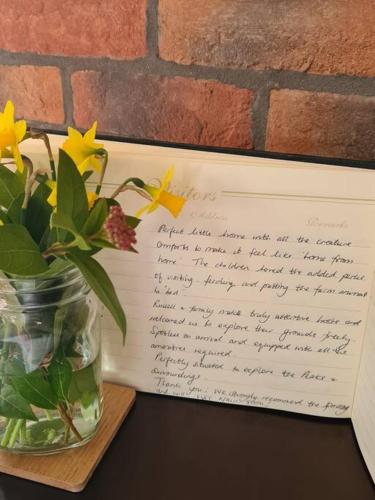 Visitors
Remarks
Perfect little home with all the creature
comforts to make it feel like 'home from
home'. The children loved the added perks
of visiting, feeding and petting the farm animals
Russell & family made truly attentive hosts and
welcomed us to explore their grounds freely.
Spotless on arrival and equipped with all the
amenities required.
Perfectly situated to explore the Peaks &
surroundings
Thank you! We strongly recommend the